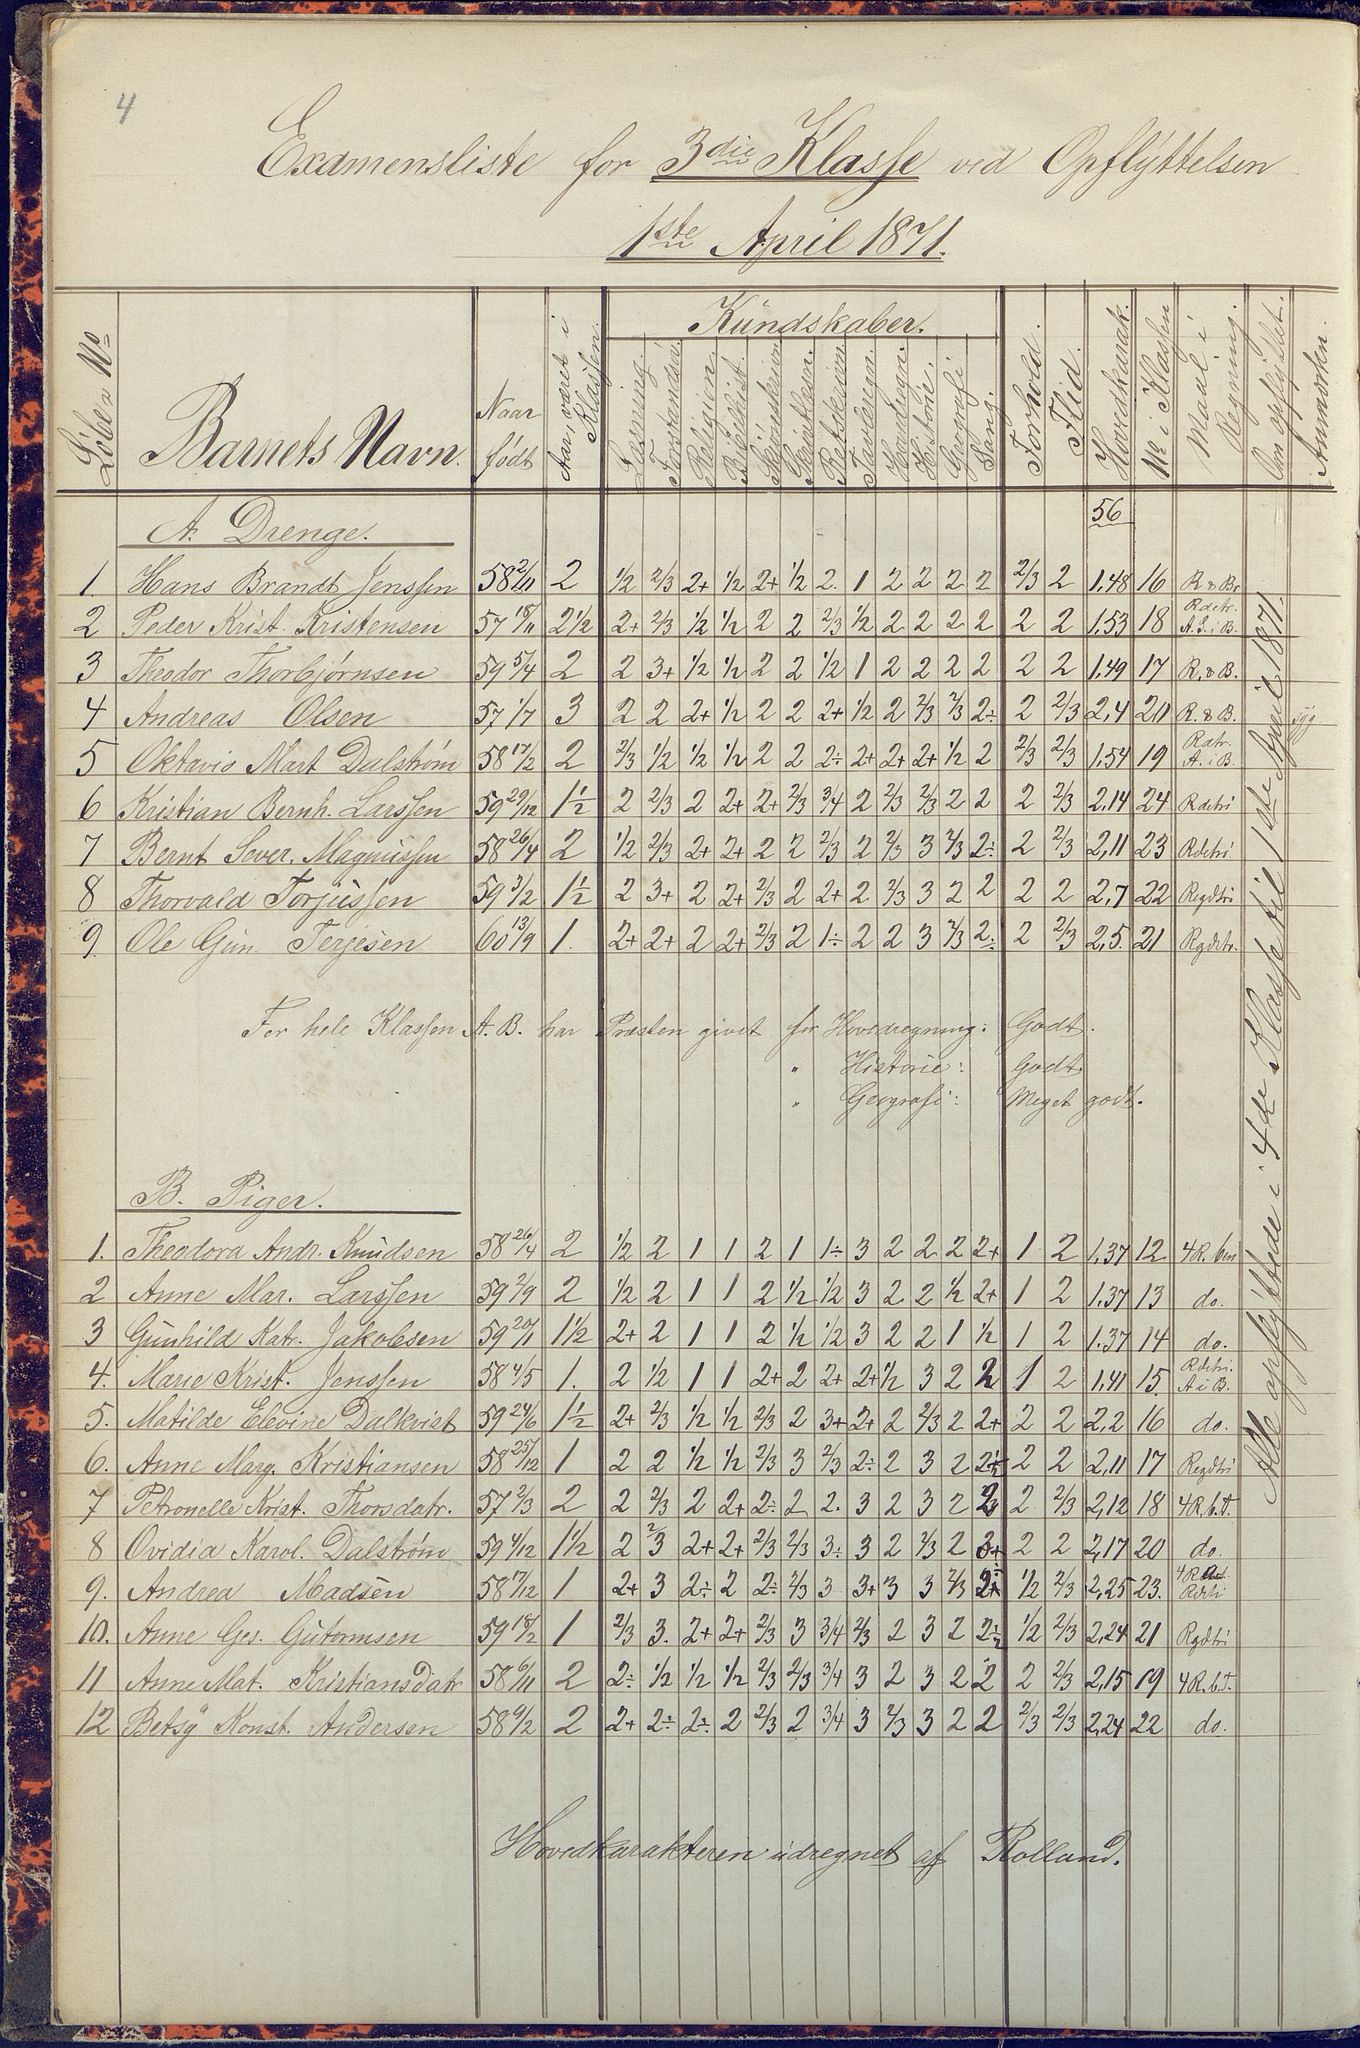 4
Examensliste for 3die Klasse ved Opflyttelsen
1ste April 1871.
Löbe No Barnets Navn. Naar födt Aar, været i Klassen. Kundskaber. Læsning. Forstandsöv. Religion. Bibelhist. Skjönskrivn. Retskrivn. Tavleregn. Hovedregn. Historie. Geografi Sang. Forhold. Flid. Hovedkarak. No i Klassen Maal i Regning. Om opflyttet. Anmærkn.
A. Drenge. 56
1. Hans Brandt Jenssen 58 2/11 2 1/2 2/3 2+ 1/2 2+ 1/2 2. 1 2 2 2 2 2/3 2 1,48 16 R & Br
2 Peder Krist. Kristensen 57 18/11 2 1/2 2+ 2/3 1/2 1/2 2 2 2/3 1/2 2 2 2 2 2 2 1,53 18 Rdetr. A. S. i B.
3 Theodor Thorbjørnsen 59 5/4 2 2 3+ 1/2 1/2 2 2 1/2 1 2 2 2 2 2 2 1,49 17 R. & B.
4 Andreas Olsen 57 1/7 3 2 2 2+ 1/2 2 2 2+ 1/2 2 2/3 2/3 2÷ 2 2/3 2,4 20 R. & B. syg
5 Oktavis Mart Dalstrøm 58 17/12 2 2/3 1/2 1/2 1/2 2 2 2÷ 2+ 2+ 2+ 1/2 2 2/3 2/3 1,54 19 Rdtr. A. i B.
6 Kristian Bernh. Larssen 59 29/12 1 1/2 2 2/3 2 2+ 2+ 2/3 3/4 2 2/3 2/3 2 2 2 2/3 2,14 24 Rdetri
7 Bernt Sever. Magnussen 58 26/4 2 1/2 2/3 2+ 2+ 2 2 2/3 2 2/3 3 2/3 2÷ 2 2/3 2,11 23 Rdetri
8 Thorvald Torjussen 59 3/2 1 1/2 2 3+ 2 2+ 2/3 2 2+ 2 2/3 3 2 2 2 2 2,7 22 Regdtri
9. Ole Gun. Terjesen 60 13/9 1. 2+ 2+ 2 2+ 2/3 2 1÷ 2 2 3 2/3 2÷ 2 2/3 2,5. 21 Rgdetr.
For hele Klassen A. B. har Præsten givet for Hovedregning: Godt.
" Historie: Godt
" Geografi: Meget godt.
B. Piger.
1. Theodora Andr. Knudsen 58 26/4 2 1/2 2 1 1 2 1 1÷ 3 2 2 2 2+ 1 2 1,37 12 4 R.
2 Anne Mar. Larssen 59 2/9 2 1/2 2 1 1 2 1/2 1/2 3 2 2 1/2 2+ 1 2 1,37 13 do.
3 Gunhild Katr. Jakobsen 59 20/11 1 1/2 2+ 2 1 1 2 1/2 1/2 3 2 2 1 1/2 1 2 1,37 14 do.
4. Marie Krist. Jenssen 58 4/5 1. 2 1/2 1 1 2+ 2 2+ 2+ 1/2 3 2 2 1 2 1,41 15. Rdetri. A i B.
5. Matilde Elevine Dalkvist 59 24/6 1 1/2 2+ 2/3 1/2 1/2 2/3 2 3+ 2+ 2 2/3 2 2+ 2 2 2,2 16 do.
6. Anne Marg. Kristiansen 58 25/12 1 2 2 1/2 1/2 2/3 3 2/3 2÷ 2 3 2 2 2 2 2,11 17 Regdtri
7 Petronelle Krist. Thorsdatr. 57 2/3 2 2 2/3 2 2+ 2÷ 2 2. 3 2 3 2 2 2 2/3 2,12 18 4 R. b. t.
8 Ovidia Karol. Dalstrøm 59 4/12 1 1/2 2 2/3 2+ 2+ 2/3 2/3 3÷ 3 2 2/3 2 3+ 2 2 2,17 20 do.
9. Andrea Madsen 58 17/12 1 2+ 3 2÷ 2 2÷ 2/3 3 3+ 3 3 2/3 2+ 1/2 2/3 2,25 23. 4 R Rdetri
10. Anne Ges. Gutormsen 59 18/2 1 2/3 3. 2+ 2+ 2/3 3 3/4 2/3 2 3 2 2÷ 1/2 2/3 2,24 21 Rgdtri
11 Anne Mat. Kristiansdatr 58 6/11 2 2÷ 1/2 1/2 1/2 2/3 2/3 3/4 3 2 3 2 2 2 2/3 2,15 19 4 R. b. t.
12 Betsy Konst. Andersen 58 9/2 2 2+ 2÷ 2÷ 2 2/3 2 3/4 3 2/3 3 2 2 2/3 2/3 2,24 22 do.
Alle opflyttede i 4de Klasse til 1ste April 1871.
Hovedkarakteren udregnet af Rolland.